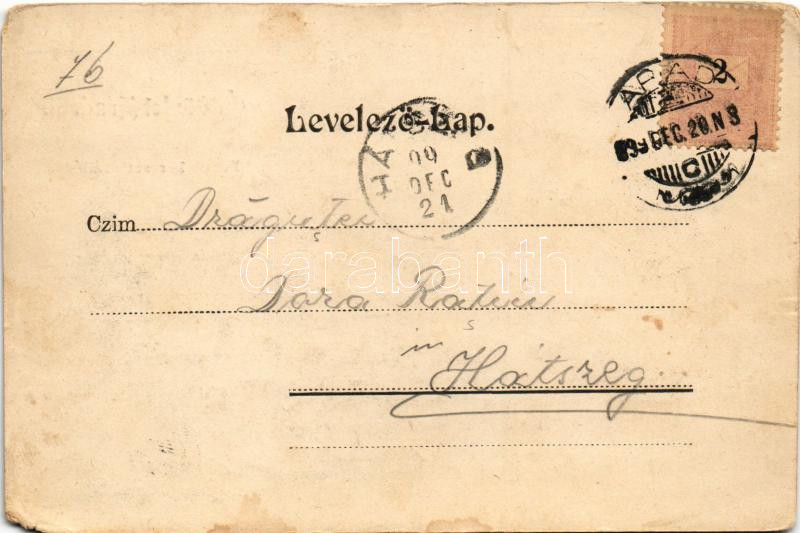 76
2
ARAD
899 DEC. 20. N 3
C
Levelező-Lap.
99
DEC
21
Czim Drăguței
Dora Rațiu
in
Hátszeg
darabanth